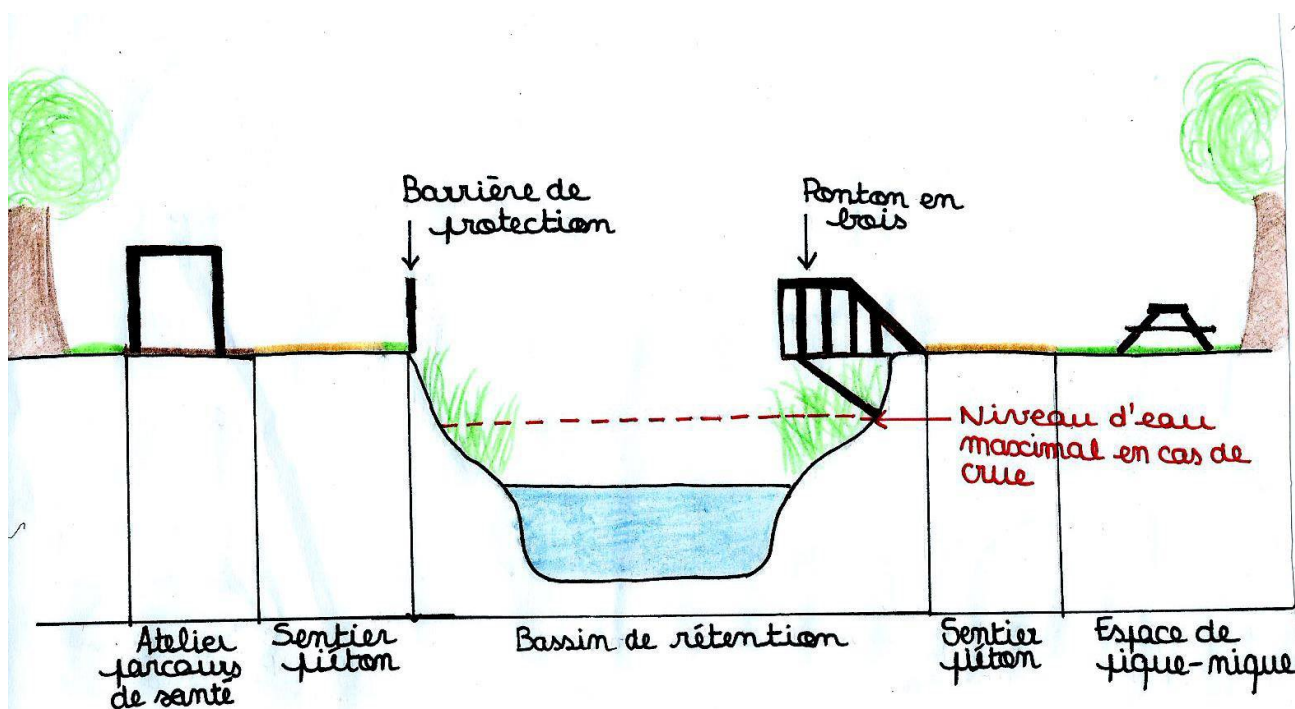 Barrière de
protection
Ponton en
bois
Niveau d'eau
maximal en cas de
crue
Atelier
parcours
de santé
Sentier
piéton
Bassin de rétention
Sentier
piéton
Espace de
pique-nique